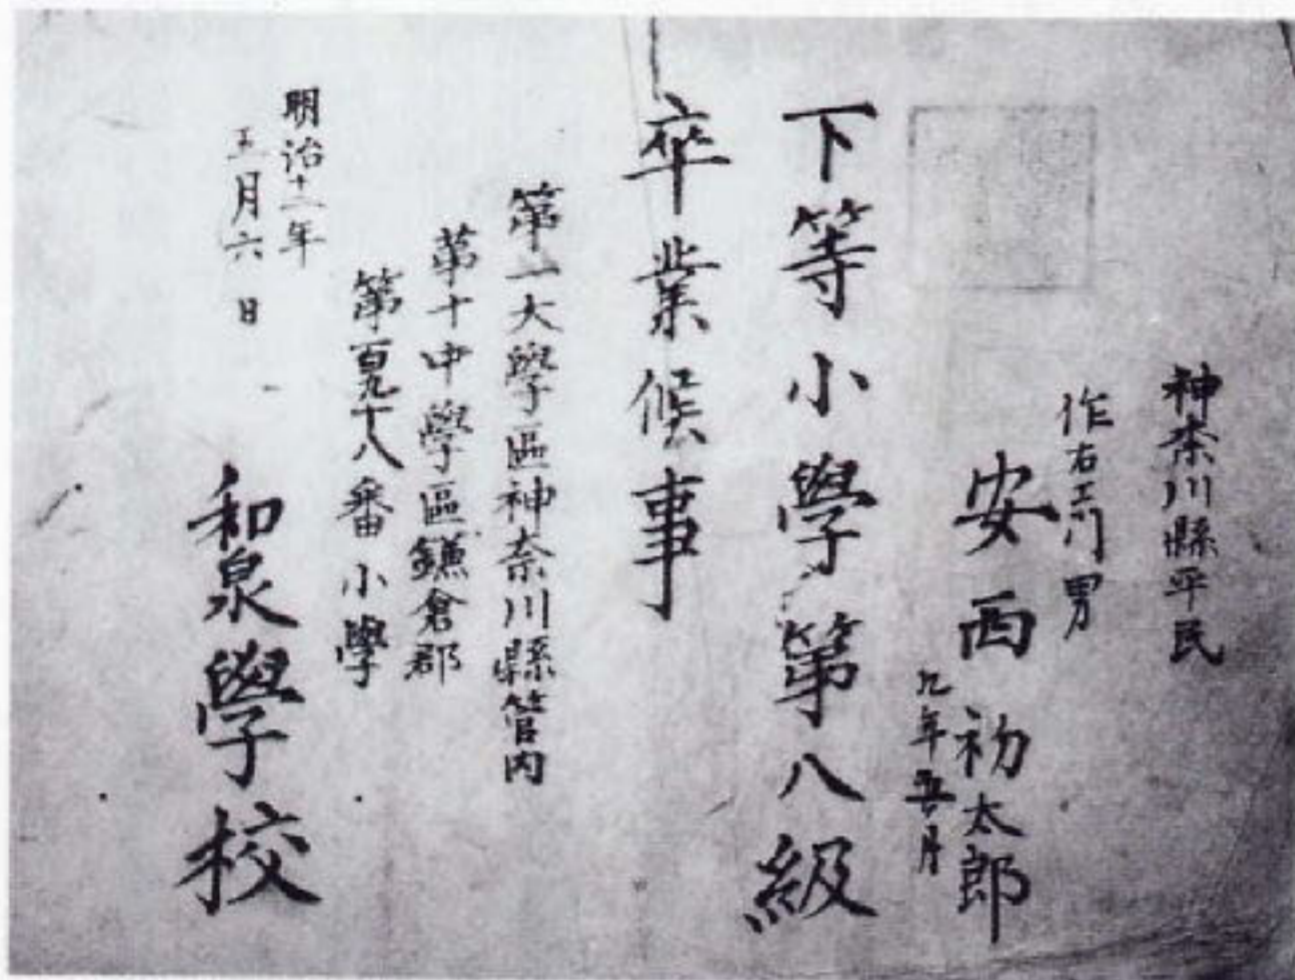 神奈川縣平民
作右エ門 男
安西初太郎
九年五月
下等小學第八級
卒業候事
第一大學區神奈川縣管内
第十中學區鎌倉郡
第百九十八番小學
明治十二年
五月六日
和泉學校